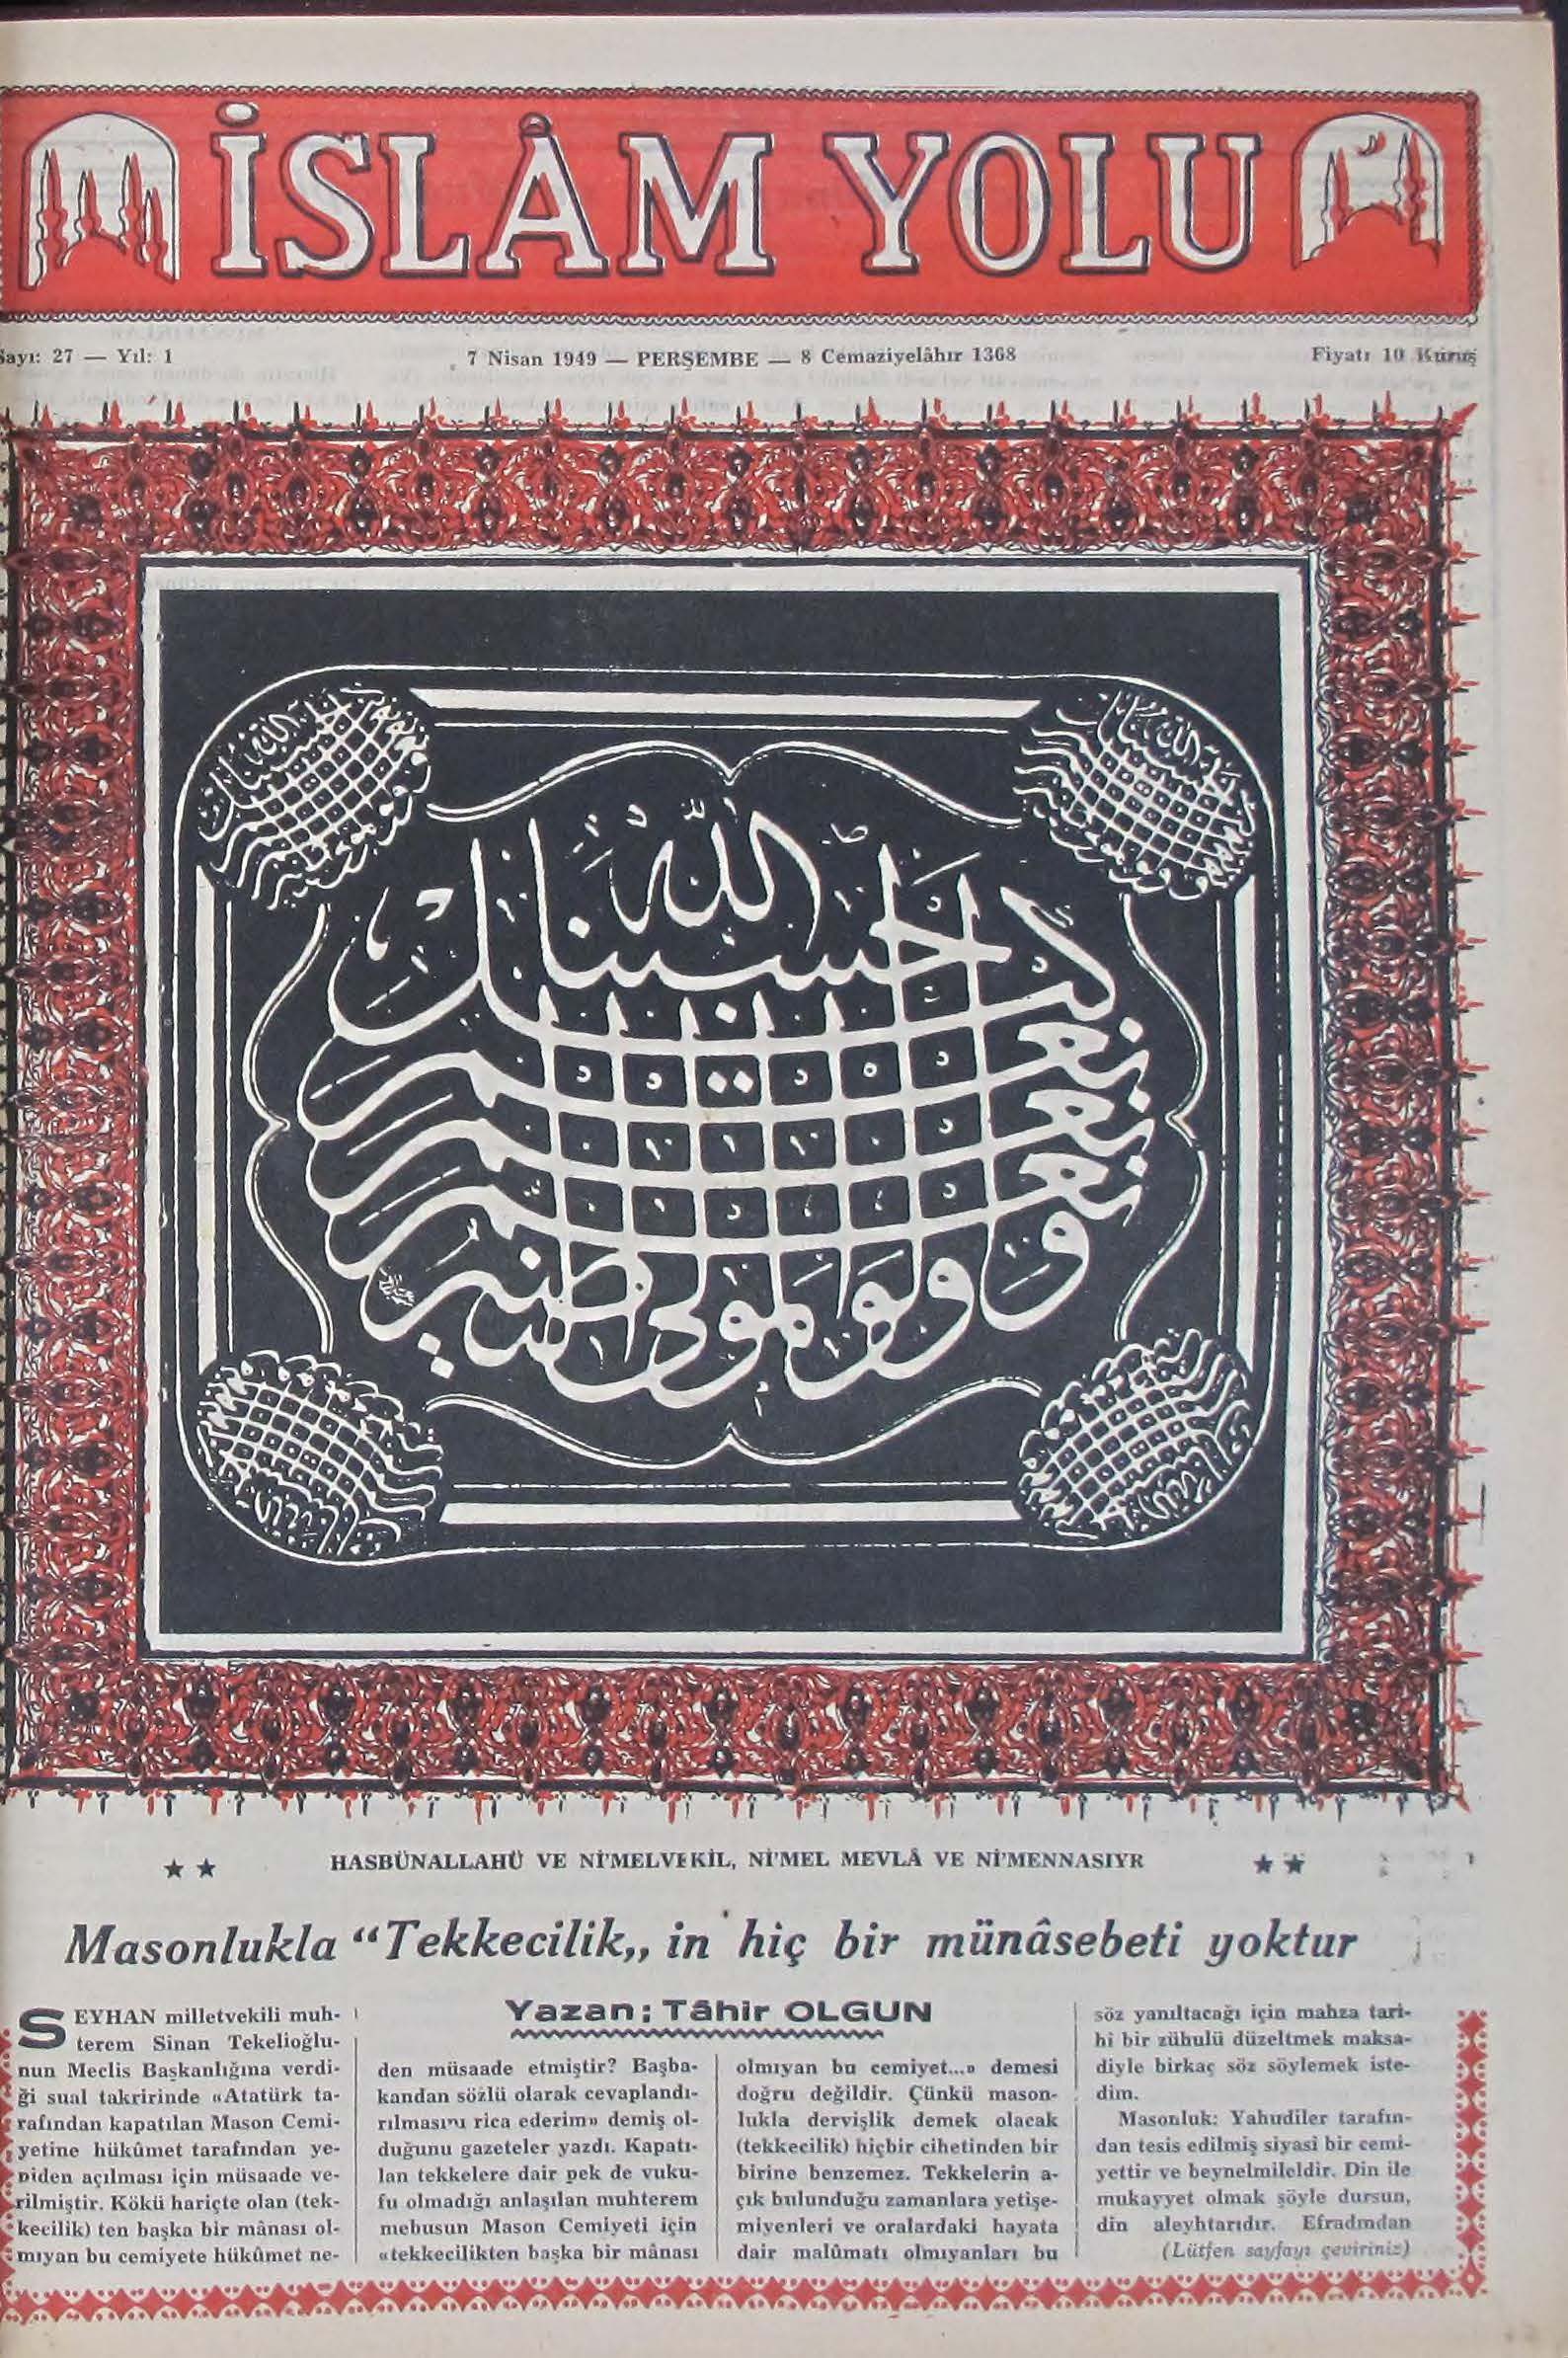 İSLÂM YOLU
Sayı: 27 — Yıl: 1
7 Nisan 1949 — PERŞEMBE — 8 Cemaziyelâhır 1368
Fiyatı 10 Kuruş
حسبنا الله
ونعم الوكيل
نعم المولى
ونعم النصير
★ ★ HASBÜNALLAHÜ VE Nİ'MELVEKİL, Nİ'MEL MEVLÂ VE Nİ'MENNASIYR ★ ★
Masonlukla “Tekkecilik„ in hiç bir münâsebeti yoktur
Yazan: Tâhir OLGUN
SEYHAN milletvekili muh-
terem Sinan Tekelioğlu-
nun Meclis Başkanlığına verdi-
ği sual takririnde «Atatürk ta-
rafından kapatılan Mason Cemi-
yetine hükûmet tarafından ye-
niden açılması için müsaade ve-
rilmiştir. Kökü hariçte olan (tek-
kecilik) ten başka bir mânası ol-
mıyan bu cemiyete hükûmet ne-
den müsaade etmiştir? Başba-
kandan sözlü olarak cevaplandı-
rılmasını rica ederim» demiş ol-
duğunu gazeteler yazdı. Kapatı-
lan tekkelere dair pek de vuku-
fu olmadığı anlaşılan muhterem
mebusun Mason Cemiyeti için
«tekkecilikten başka bir mânası
olmıyan bu cemiyet...» demesi
doğru değildir. Çünkü mason-
lukla dervişlik demek olacak
(tekkecilik) hiçbir cihetinden bir
birine benzemez. Tekkelerin a-
çık bulunduğu zamanlara yetişe-
miyenleri ve oralardaki hayata
dair malûmatı olmıyanları bu
söz yanıltacağı için mahza tari-
hi bir zühulü düzeltmek maksa-
diyle birkaç söz söylemek iste-
dim.
Masonluk: Yahudiler tarafın-
dan tesis edilmiş siyasî bir cemi-
yettir ve beynelmileldir. Din ile
mukayyet olmak şöyle dursun,
din aleyhtarıdır. Efradından
(Lütfen sayfayı çeviriniz)